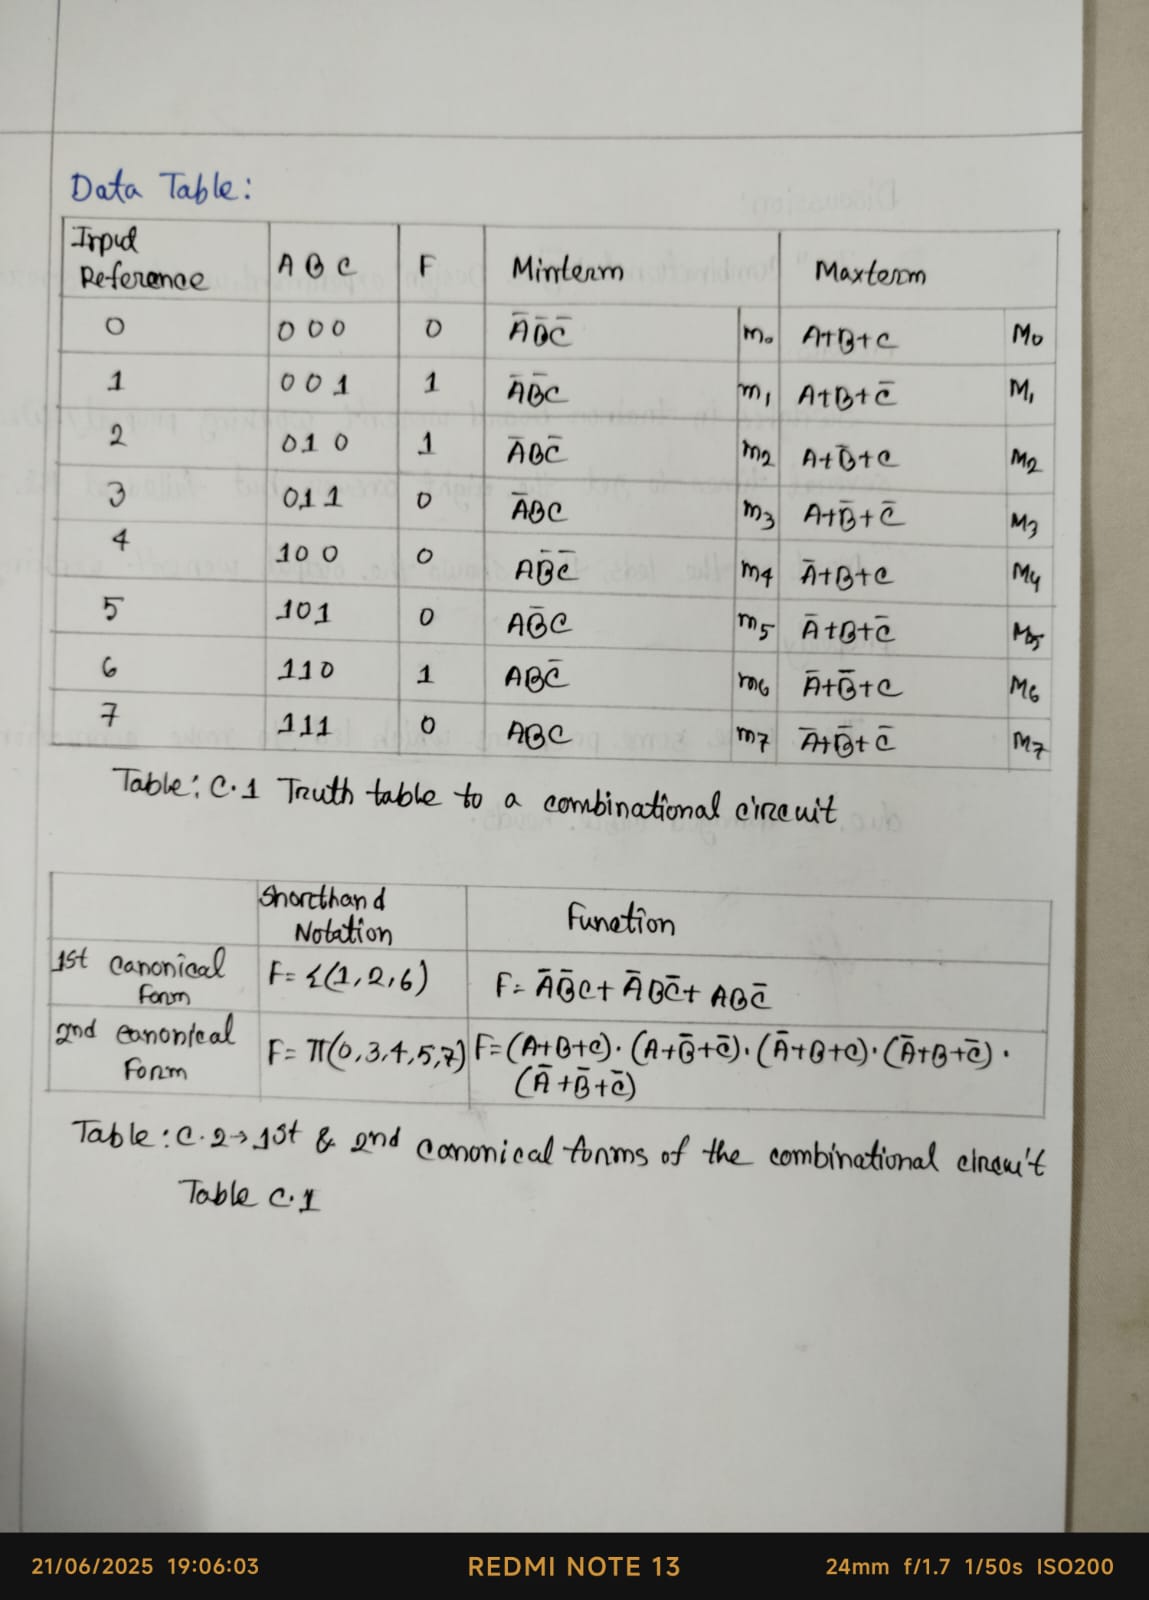 Data Table:
Input Reference | A B C | F | Minterm | Maxterm
0 | 0 0 0 | 0 | A̅B̅C̅ | m₀ | A+B+C | M₀
1 | 0 0 1 | 1 | A̅B̅C | m₁ | A+B+C̅ | M₁
2 | 0 1 0 | 1 | A̅BC̅ | m₂ | A+B̅+C | M₂
3 | 0 1 1 | 0 | A̅BC | m₃ | A+B̅+C̅ | M₃
4 | 1 0 0 | 0 | AB̅C̅ | m₄ | A̅+B+C | M₄
5 | 1 0 1 | 0 | AB̅C | m₅ | A̅+B+C̅ | M₅
6 | 1 1 0 | 1 | ABC̅ | m₆ | A̅+B̅+C | M₆
7 | 1 1 1 | 0 | ABC | m₇ | A̅+B̅+C̅ | M₇
Table: C.1 Truth table to a combinational circuit
Shorthand Notation | Function
1st canonical Form | F= Σ(1,2,6) | F= A̅B̅C+ A̅BC̅+ ABC̅
2nd canonical Form | F= π(0,3,4,5,7) | F=(A+B+C)·(A+B̅+C̅)·(A̅+B+C)·(A̅+B+C̅)·
(A̅+B̅+C̅)
Table: C.2→1st & 2nd canonical forms of the combinational circuit
Table C.1
21/06/2025 19:06:03 REDMI NOTE 13 24mm f/1.7 1/50s ISO200